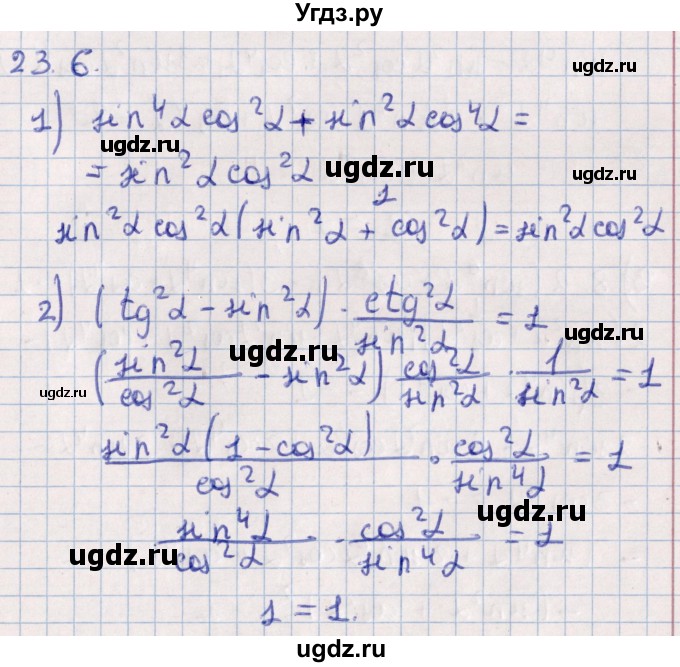 Угдз.ру
23.6.
ugdz.ru
1) sin⁴α cos²α + sin²α cos⁴α =
ugdz.ru ugdz.ru
= sin²α cos²α
ugdz.ru
1
sin²α cos²α (sin²α + cos²α) = sin²α cos²α
2) (tg²α - sin²α) · ctg²α / sin²α = 1
ugdz.ru ugdz.ru ugdz.ru
(sin²α / cos²α - sin²α) cos²α / sin²α · 1 / sin²α = 1
sin²α (1 - cos²α) / cos²α · cos²α / sin⁴α = 1
ugdz.ru
sin⁴α / cos²α · cos²α / sin⁴α = 1
ugdz.ru ugdz.ru
1 = 1.
ugdz.ru